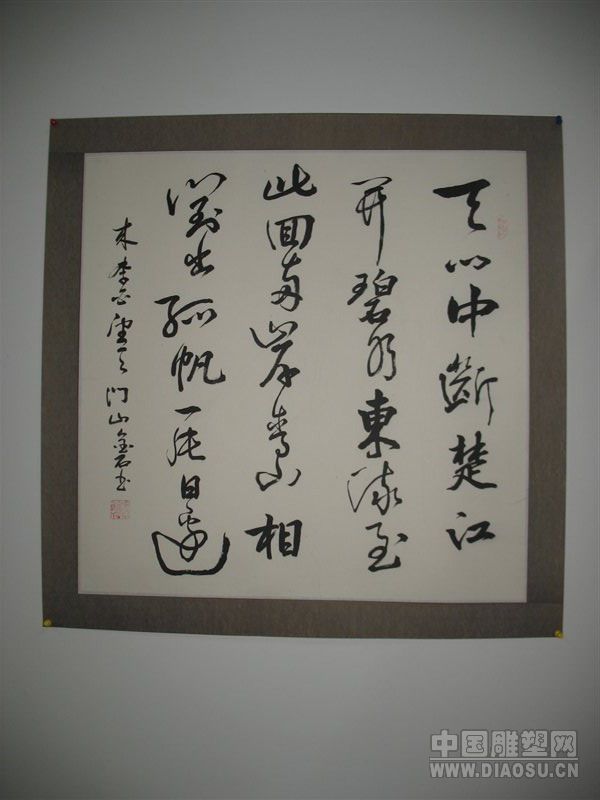 天门中断楚江
开碧水東流至
此回两岸青山相
對出孤帆一片日邊
来李白望天门山金石书
中国雕塑网
WWW.DIAOSU.CN